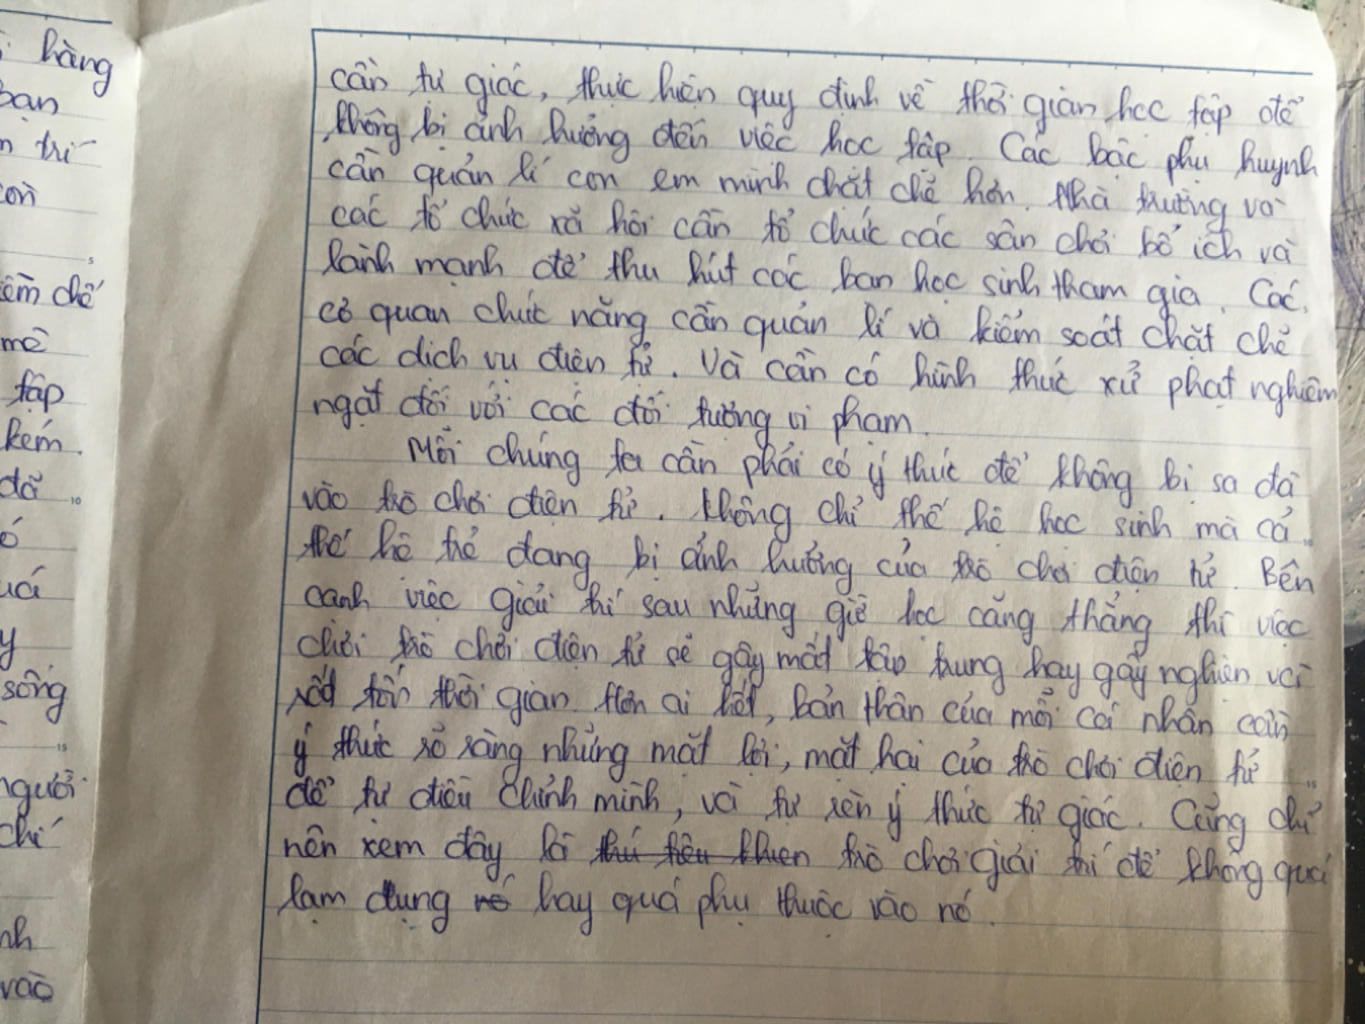 hàng
bạn
trí
còn
kiềm chế
mê
tập
kém.
đó
có
quá
y
sống
người
chí
nh
vào
cần tự giác, thực hiện quy định về thời gian học tập để
không bị ảnh hưởng đến việc học tập. Các bậc phụ huynh
cần quản lí con em mình chặt chẽ hơn. Nhà trường và
các tổ chức xã hội cần tổ chức các sân chơi bổ ích và
lành mạnh để thu hút các bạn học sinh tham gia. Các
cơ quan chức năng cần quản lí và kiểm soát chặt chẽ
các dịch vụ điện tử. Và cần có hình thức xử phạt nghiêm
ngặt đối với các đối tượng vi phạm.
Mỗi chúng ta cần phải có ý thức để không bị sa đà
vào trò chơi điện tử. Không chỉ thế hệ học sinh mà cả
thế hệ trẻ đang bị ảnh hưởng của trò chơi điện tử. Bên
cạnh việc giải trí sau những giờ học căng thẳng thì việc
chơi trò chơi điện tử sẽ gây mất tập trung hay gây nghiện và
rất tốn thời gian. Hơn ai hết, bản thân của mỗi cá nhân cần
ý thức rõ ràng những mặt lợi, mặt hại của trò chơi điện tử
để tự điều chỉnh mình, và tự rèn ý thức tự giác. Cũng chỉ
nên xem đây là thú tiêu khiển trò chơi giải trí để không quá
lạm dụng nó hay quá phụ thuộc vào nó.